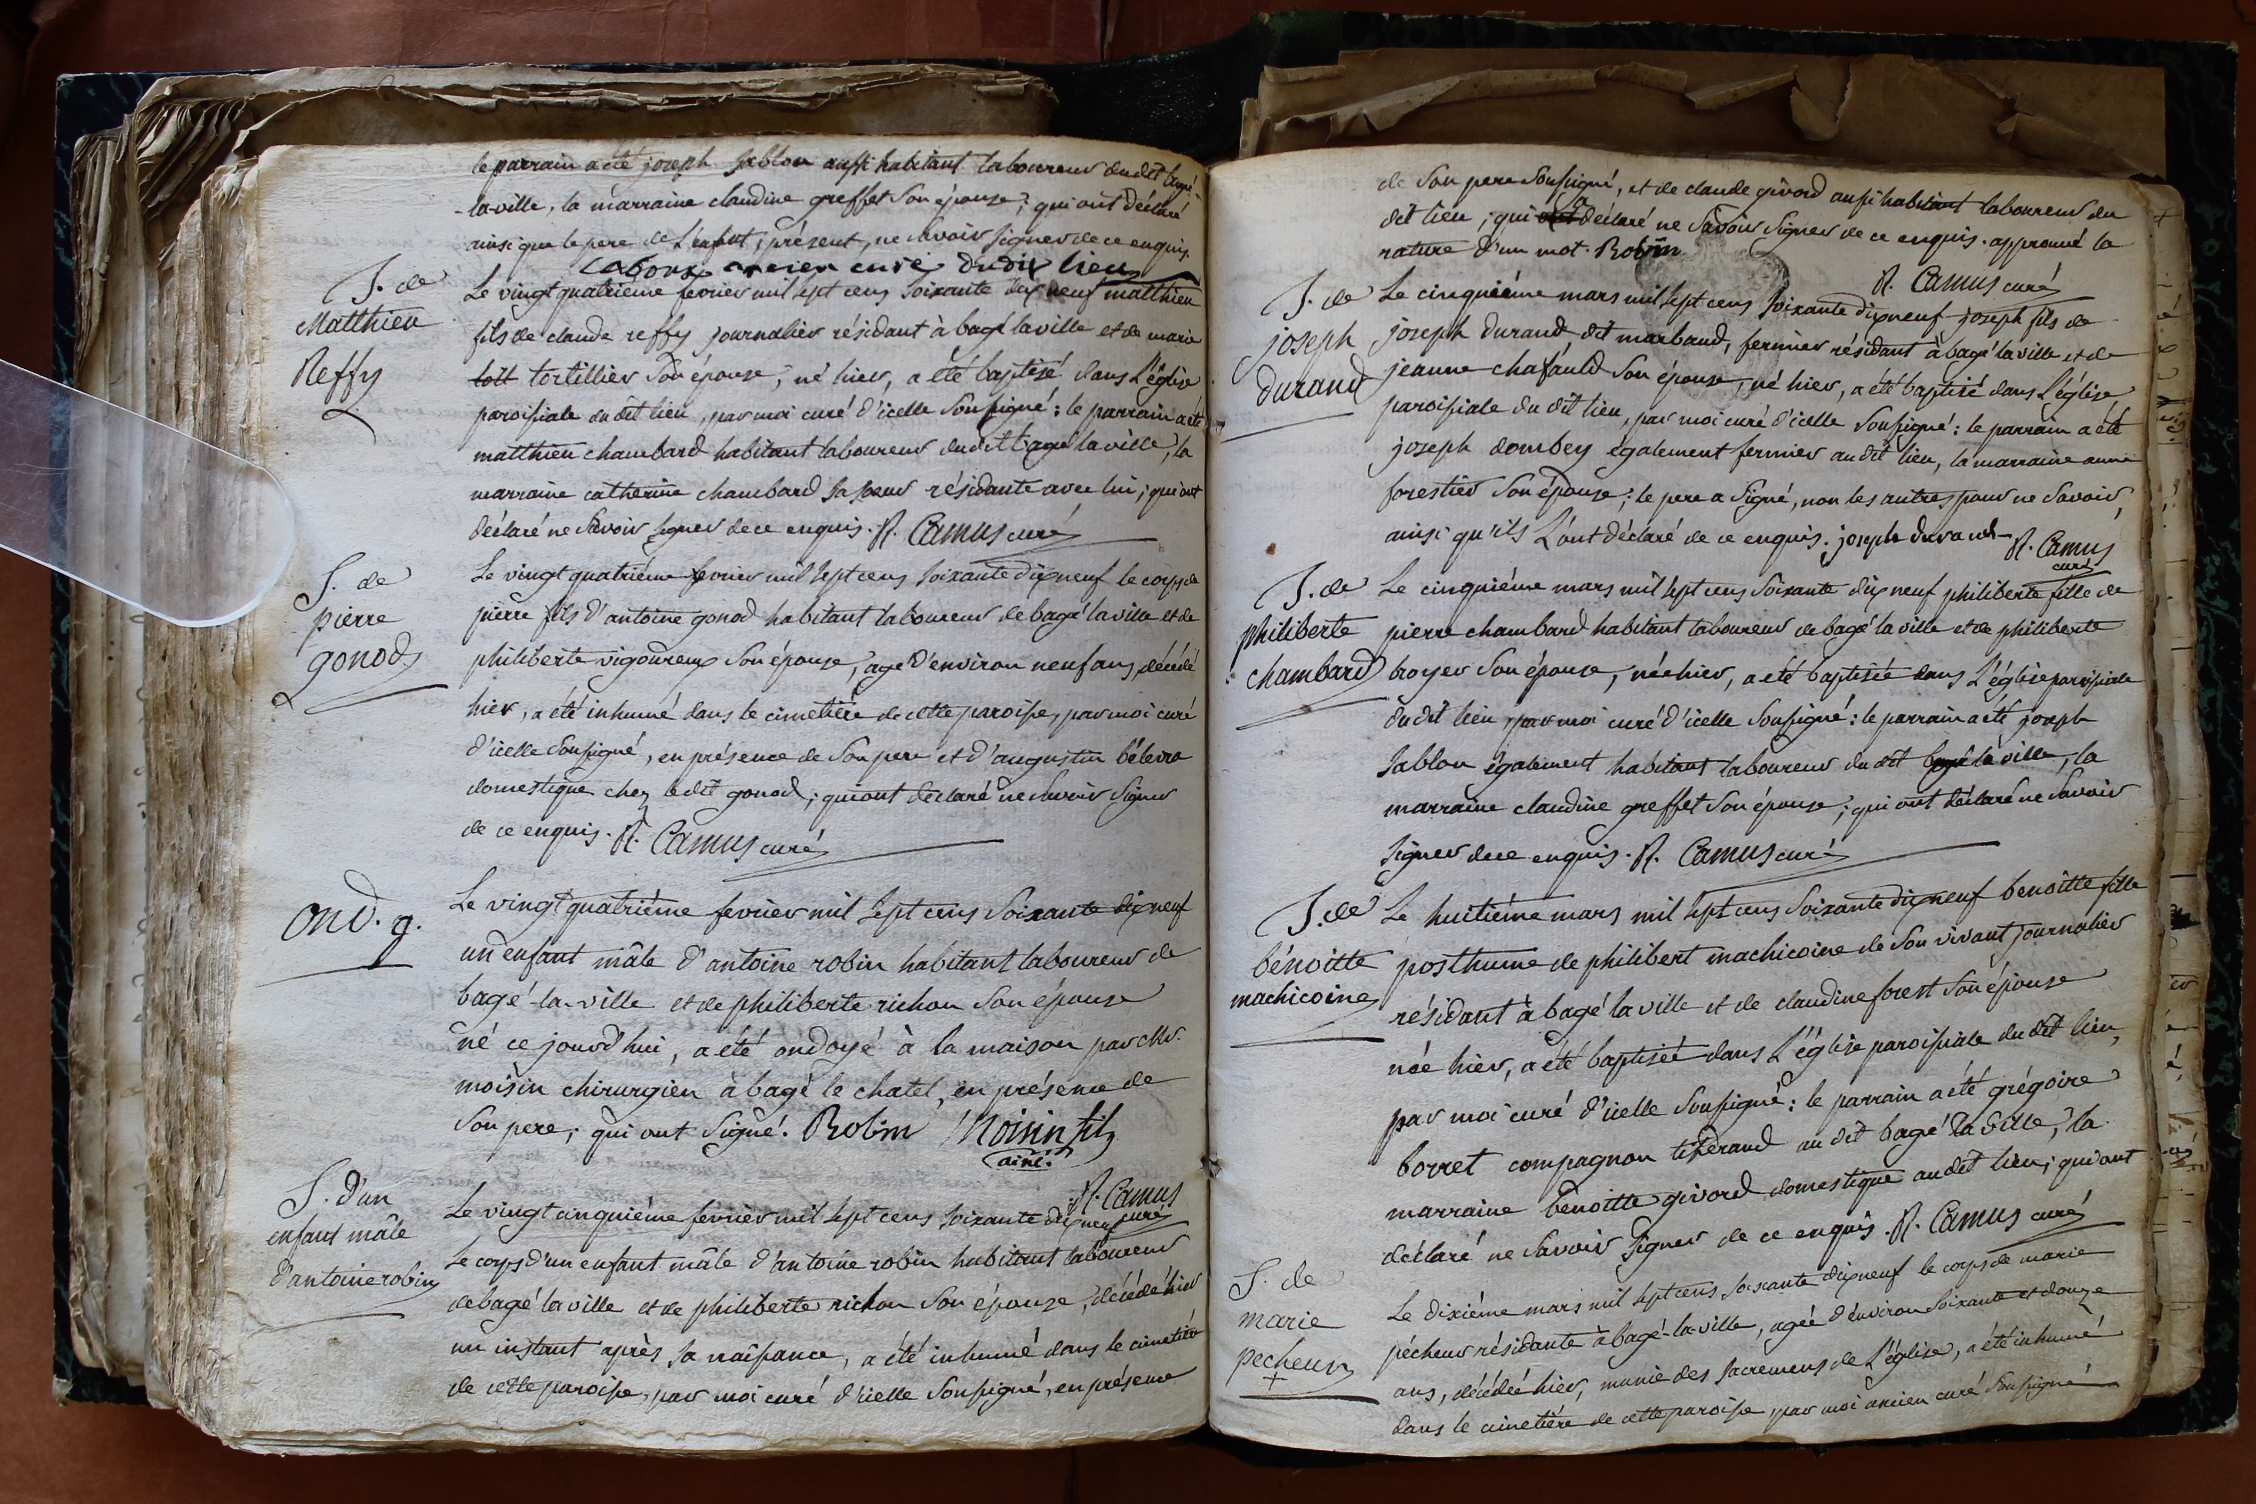 le parrain a été joseph sablon aussi habitant laboureur du dit bagé
-la-ville, la marraine claudine greffet son épouse; qui ont déclaré
ainsi que le pere de L'enfant, présent, ne savoir signer de ce enquis.
ancien curé dudit lieu
J. de
Matthieu
Reffy
Le vingt quatriéme fevrier mil sept cens soixante dix neuf matthieu
fils de claude reffy journalier résidant à bagé la ville et de marie
tortillier son épouse, né hier, a été baptisé dans L'église
paroissiale du dit lieu, par moi curé d'icelle soussigné: le parrain a été
matthieu chambard habitant laboureur du dit bagé la ville, la
marraine catherine chambard sa soeur résidante avec lui; qui ont
déclaré ne savoir signer de ce enquis. R. Camus curé
S. de
pierre
gonod
Le vingt quatriéme fevrier mil sept cens soixante dix neuf le corps de
pierre fils d'antoine gonod habitant laboureur de bagé la ville et de
philiberte vigoureux son épouse, agé d'environ neuf ans, décédé
hier, a été inhumé dans le cimetiére de cette paroisse, par moi curé
d'icelle soussigné, en présence de son pere et d'augustin
domestique chez ledit gonod; qui ont déclaré ne savoir signer
de ce enquis. R. Camus curé
Ond. g.
Le vingt quatriéme fevrier mil sept cens soixante dix neuf
un enfant mâle d'antoine robin habitant laboureur de
bagé-la-ville et de philiberte richon son épouse
né ce jourd'hui, a été ondoyé à la maison par Mr.
moisin chirurgien à bagé le chatel, en présence de
son pere; qui ont signé. Robin Moisin fils
ainé.
R. Camus
curé
S. d'un
enfant mâle
d'antoine robin
Le vingt cinquiéme fevrier mil sept cens soixante dix neuf
Le corps d'un enfant mâle d'antoine robin habitant laboureur
de bagé la ville et de philiberte richon son épouse, décédé hier
un instant après sa naissance, a été inhumé dans le cimetiére
de cette paroisse, par moi curé d'icelle soussigné, en présence
de son pere soussigné, et de claude givord aussi habitant laboureur du
dit lieu; qui a déclaré ne savoir signer de ce enquis. approuvé la
rature d'un mot. Robin
R. Camus curé
J. de
joseph
durand
Le cinquiéme mars mil sept cens soixante dix neuf joseph fils de
joseph durand dit marband, fermier résidant à bagé la ville et de
jeanne chafauld son épouse, né hier, a été baptisé dans L'église
paroissiale du dit lieu, par moi curé d'icelle soussigné: le parrain a été
joseph dombey également fermier au dit lieu, la marraine anne
forestier son épouse; le pere a signé, non les autres pour ne savoir,
ainsi qu'ils L'ont déclaré de ce enquis. joseph durand R. Camus
curé
J. de
philiberte
chambard
Le cinquiéme mars mil sept cens soixante dix neuf philiberte fille de
pierre chambard habitant laboureur de bagé la ville et de philiberte
broyer son épouse, née hier, a été baptisée dans L'église paroissiale
du dit lieu, par moi curé d'icelle soussigné: le parrain a été joseph
sablon également habitant laboureur du dit bagé la ville, la
marraine claudine greffet son épouse; qui ont déclaré ne savoir
signer de ce enquis. R. Camus curé
J. de
bénoitte
machicoine
Le huitiéme mars mil sept cens soixante dix neuf benoitte fille
posthume de philibert machicoine de son vivant journalier
résidant à bagé la ville et de claudine forest son épouse
née hier, a été baptisée dans L'église paroissiale du dit lieu,
par moi curé d'icelle soussigné: le parrain a été grégoire
borret compagnon titserand au dit bagé la ville, la
marraine benoitte givord domestique au dit lieu; qui ont
déclaré ne savoir signer de ce enquis. R. Camus curé
S. de
marie
pecheur
+
Le dixiéme mars mil sept cens soixante dix neuf le corps de marie
pécheur résidante à bagé-la-ville, agée d'environ soixante et douze
ans, décédée hier, munie des sacremens de L'église, a été inhumé
dans le cimetiére de cette paroisse, par moi ancien curé soussigné